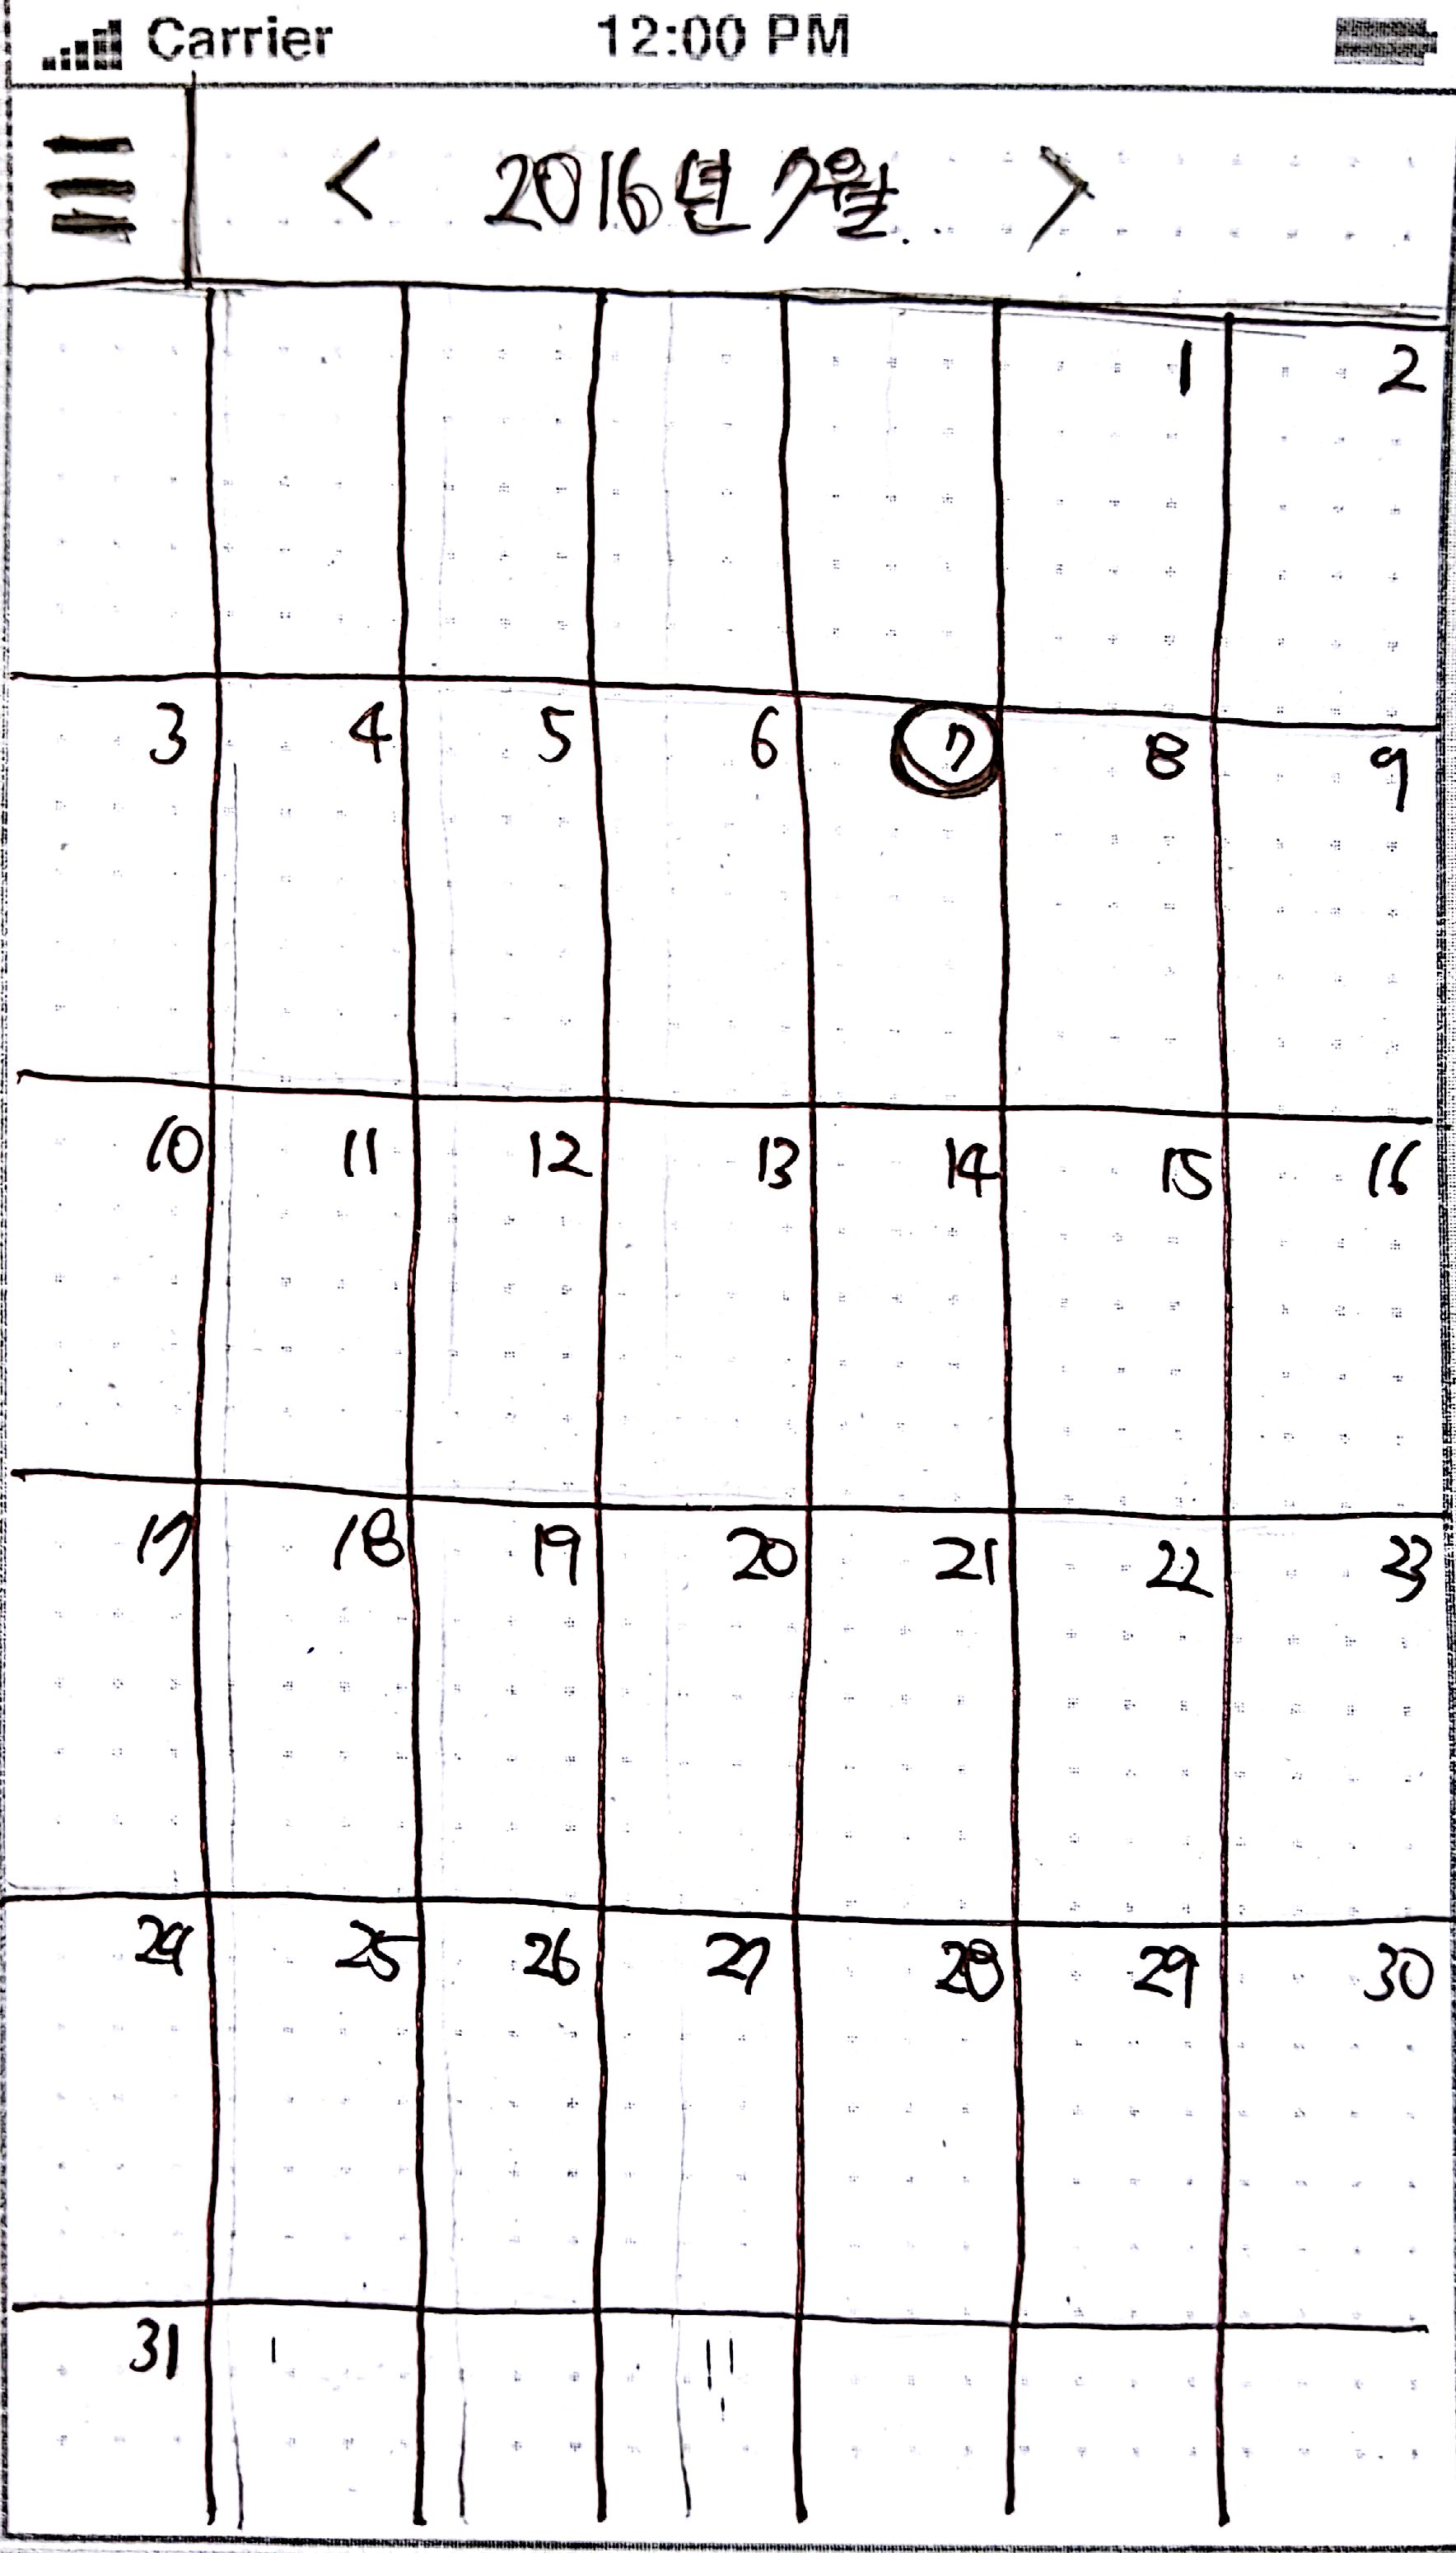 Carrier 12:00 PM
< 2016년 7월 >
1 2
3 4 5 6 7 8 9
10 11 12 13 14 15 16
17 18 19 20 21 22 23
24 25 26 27 28 29 30
31